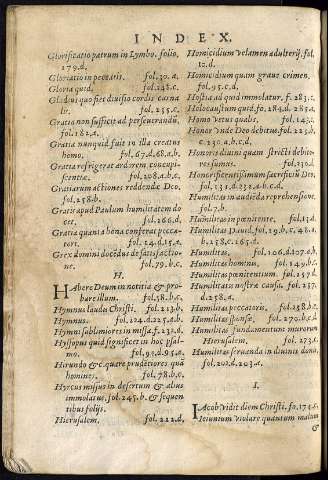 INDEX.
Glorificatio patrum in Lymbo. folio,
179.d.
Gloriatio in peccatis. fol.30.a.
Gloria quid. fol.248.c.
Gladius quo fiet divisio cordis carna
lis. fol.255.c.
Gratia non sufficit ad perseverandũ,
fol.182.a.
Gratia nunquid fuit in illa creatus
homo. fol.67.d.68.a.b.
Gratia refrigerat ardorem concupi-
scentiæ. fol.208.a.b.c.
Gratiarum actiones reddendæ Deo,
fol.258.b.
Gratis apud Paulum humilitatem do
cet. fol.266.c.
Gratia quanta bona conferat pecca-
tori. fol.24.d.25.a.
Grex domini docẽdus de satisfactio-
ne. fol.79.b.c.
H.
HAbere Deum in notitia & pro-
bare illum. fol.58.b.c.
Hymnus laudis Christi. fol.213.b.
Hymnus, fol.233.d.
Hymni sublimiores in missa.f.233.d.
Hyssopus quid significet in hoc psal-
mo. fol.94.d.95.a.
Hirundo &c. quare prudẽtiores quã
homines, fol.78.b.c.
Hyrcus missus in desertum & alius
immolatus. fol.245.b. & sequen
tibus folijs.
Hierusalem. fol.222.d.
Homicidium velamen adulterij, fol.
12.d.
Homicidium quam grave crimen,
fol.95.c.d.
Hostia ad quid immolatur. f. 283.c.
Holocaustum quid. fo.284.d.285.a.
Homo vetus qualis. fol.143.c.
Honor unde Deo debitus. fol.229.b.
c.230.a.b.c.d.
Honores divini quam stricti debito-
res sumus. fol.230.d
Honorificentissimum sacrificiũ Deo,
fol, 231.d.232.a.b.c.d.
Humilitas in audiẽda reprehensione,
fol.7.b.
Humilitas in pœnitente. fol.13.d.
Humilitas David. fol.29.b.c. 48.a.
b.158.c.165.d.
Humilitas, fol.206.d.207.d.
Humilitas hominis, fol.149.b.c.
Humilitas pœnitentium. fol.257.d
Humilitatis nostræ causa. fol.257.
d.258.a.
Humilitas peccatoris. fol.258.b.c.
Humilitas sponsæ, fol.270.b.c.d
Humilitas fundamentum murorum
Hierusalem, fol.273.a.
Humilitas servanda in divinis donis,
fol.202.d.203.a.
I.
IAcob vidit diem Christi. fo.174.c.
Ieiunium violare quantum malum
&